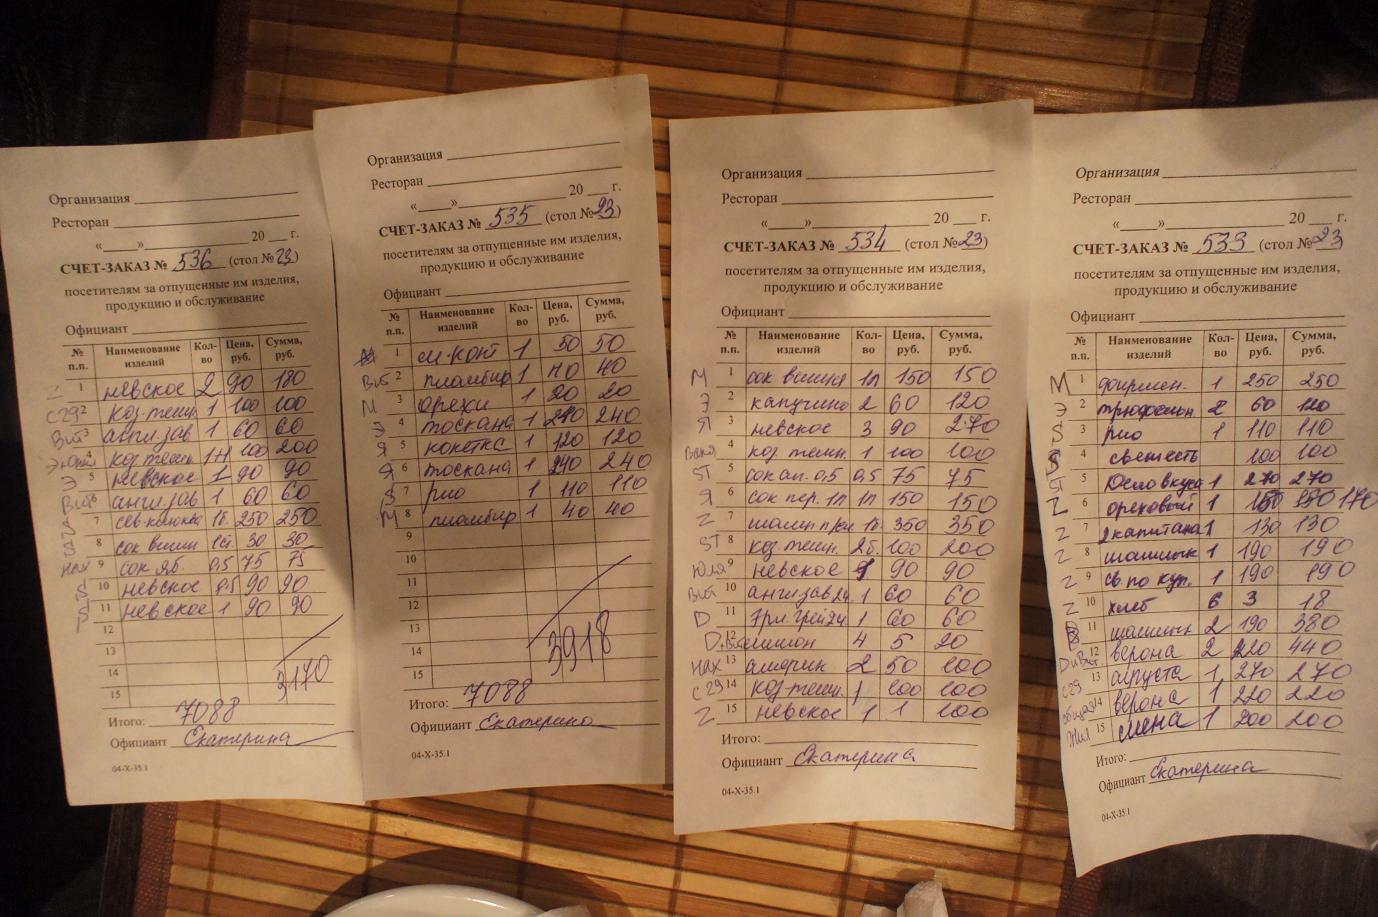 Организация
Ресторан
« » 20 г.
СЧЕТ-ЗАКАЗ № 536 (стол № 23)
посетителям за отпущенные им изделия,
продукцию и обслуживание
Официант
№ п.п. Наименование изделий Кол-во Цена, руб. Сумма, руб.
Z 1 невское 2 90 180
C29 2 коз. темн. 1 100 100
Вит 3 англ. зав 1 60 60
4 коз темн 1+1 100 200
Э 5 невское 1 90 90
Вит 6 англ. зав 1 60 60
7 1б. 250 250
8 сок вишн 1ст. 30 30
нах 9 сок яб. 0,5 75 75
S 10 невское 0,5 90 90
11 невское 1 90 90
12
13
14
15
3170
Итого: 7088
Официант Екатерина
04-Х-35.1
Организация
Ресторан
« » 20 г.
СЧЕТ-ЗАКАЗ № 535 (стол № 23)
посетителям за отпущенные им изделия,
продукцию и обслуживание
Официант
№ п.п. Наименование изделий Кол-во Цена, руб. Сумма, руб.
1 1 50 50
Вит 2 пломбир 1 40 40
М 3 орехи 1 20 20
Э 4 тоскана 1 240 240
Я 5 кокетка 1 120 120
Я 6 тоскана 1 240 240
S 7 рио 1 110 110
М 8 пломбир 1 40 40
9
10
11
12
13
14
15
3918
Итого: 7088
Официант Екатерина
04-Х-35.1
Организация
Ресторан
« » 20 г.
СЧЕТ-ЗАКАЗ № 534 (стол № 23)
посетителям за отпущенные им изделия,
продукцию и обслуживание
Официант
№ п.п. Наименование изделий Кол-во Цена, руб. Сумма, руб.
М 1 сок вишня 1л 150 150
Э 2 капучино 2 60 120
Я 3 невское 3 90 270
4 коз темн. 1 100 100
ST 5 сок ап. 0,5 0,5 75 75
Я 6 сок пер. 1л 1л 150 150
Z 7 1б. 350 350
ST 8 коз. темн. 2б. 100 200
Юля 9 невское 1 90 90
Вит 10 англ. зав 24 1 60 60
D 11 эрл. грей 24 1 60 60
12 лимон 4 5 20
нах 13 2 50 100
C29 14 коз-темн. 1 100 100
Z 15 невское 1 1 100
Итого:
Официант Екатерина
04-Х-35.1
Организация
Ресторан
« » 20 г.
СЧЕТ-ЗАКАЗ № 533 (стол № 23)
посетителям за отпущенные им изделия,
продукцию и обслуживание
Официант
№ п.п. Наименование изделий Кол-во Цена, руб. Сумма, руб.
М 1 фирмен. 1 250 250
Э 2 2 60 120
S 3 рио 1 110 110
S 4 свежесть 100 100
ST 5 Юсло вкуса 1 270 270
Z 6 ореховый 1 170
Z 7 2 капитана 1 130 130
Z 8 шашлык 1 190 190
Z 9 св. по куп. 1 190 190
Z 10 хлеб 6 3 18
11 шашлык 2 190 380
D и Вит 12 верона 2 220 440
C29 13 августа 1 270 270
общая 14 верона 1 220 220
15 смена 1 200 200
Итого:
Официант Екатерина
04-Х-35.1